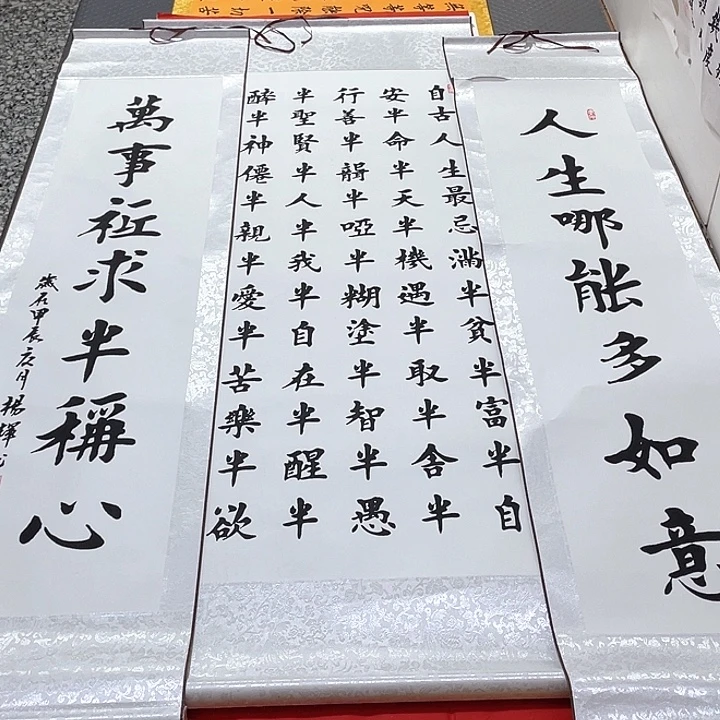 等等咒能除一切苦
人生哪能多如意
自古人生最忌滿半貧半富半自
安半命半天半機遇半取半舍半
行善半聾半啞半糊塗半智半愚
半聖賢半人半我半自在半醒半
醉半神僊半親半愛半苦樂半欲
萬事祇求半稱心
歲在甲辰月楊輝